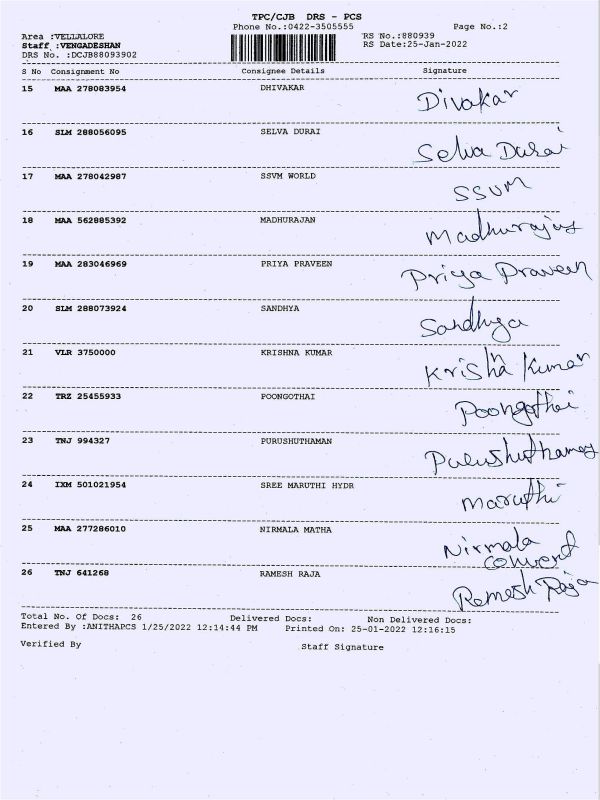 TPC/CJB DRS - PCS
Phone No.:0422-3505555 Page No.:2
Area :VELLALORE RS No.:880939
Staff :VENGADESHAN RS Date:25-Jan-2022
DRS No. :DCJB88093902
S No Consignment No Consignee Details Signature
15 MAA 278083954 DHIVAKAR Divakar
16 SLM 288056095 SELVA DURAI Selva Durai
17 MAA 278042987 SSVM WORLD SSVM
18 MAA 562885392 MADHURAJAN Madhurajan
19 MAA 283046969 PRIYA PRAVEEN Priya Praveen
20 SLM 288073924 SANDHYA Sandhya
21 VLR 3750000 KRISHNA KUMAR Krishna Kumar
22 TRZ 25455933 POONGOTHAI Poongothai
23 TNJ 994327 PURUSHUTHAMAN Purushuthaman
24 IXM 501021954 SREE MARUTHI HYDR Maruthi
25 MAA 277286010 NIRMALA MATHA Nirmala
convent
26 TNJ 641268 RAMESH RAJA Ramesh Raja
Total No. Of Docs: 26 Delivered Docs: Non Delivered Docs:
Entered By :ANITHAPCS 1/25/2022 12:14:44 PM Printed On: 25-01-2022 12:16:15
Verified By Staff Signature